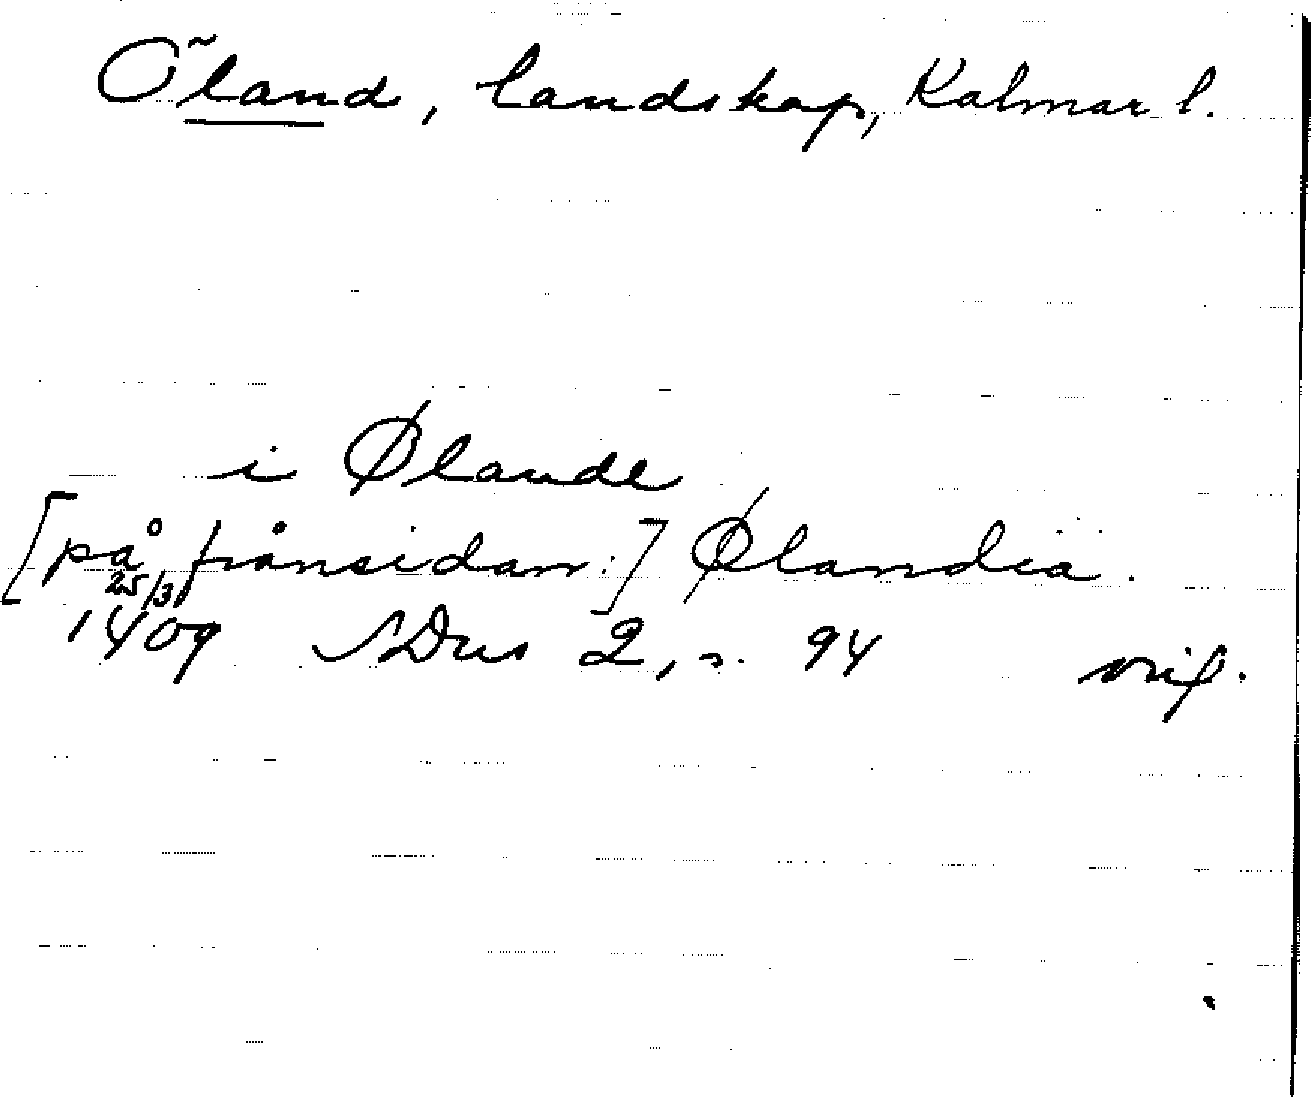 Öland, landskap, Kalmar l.
i Ølande
[på frånsidan:] Ølandia.
25/3
1409 SDns 2, s. 94 orig.